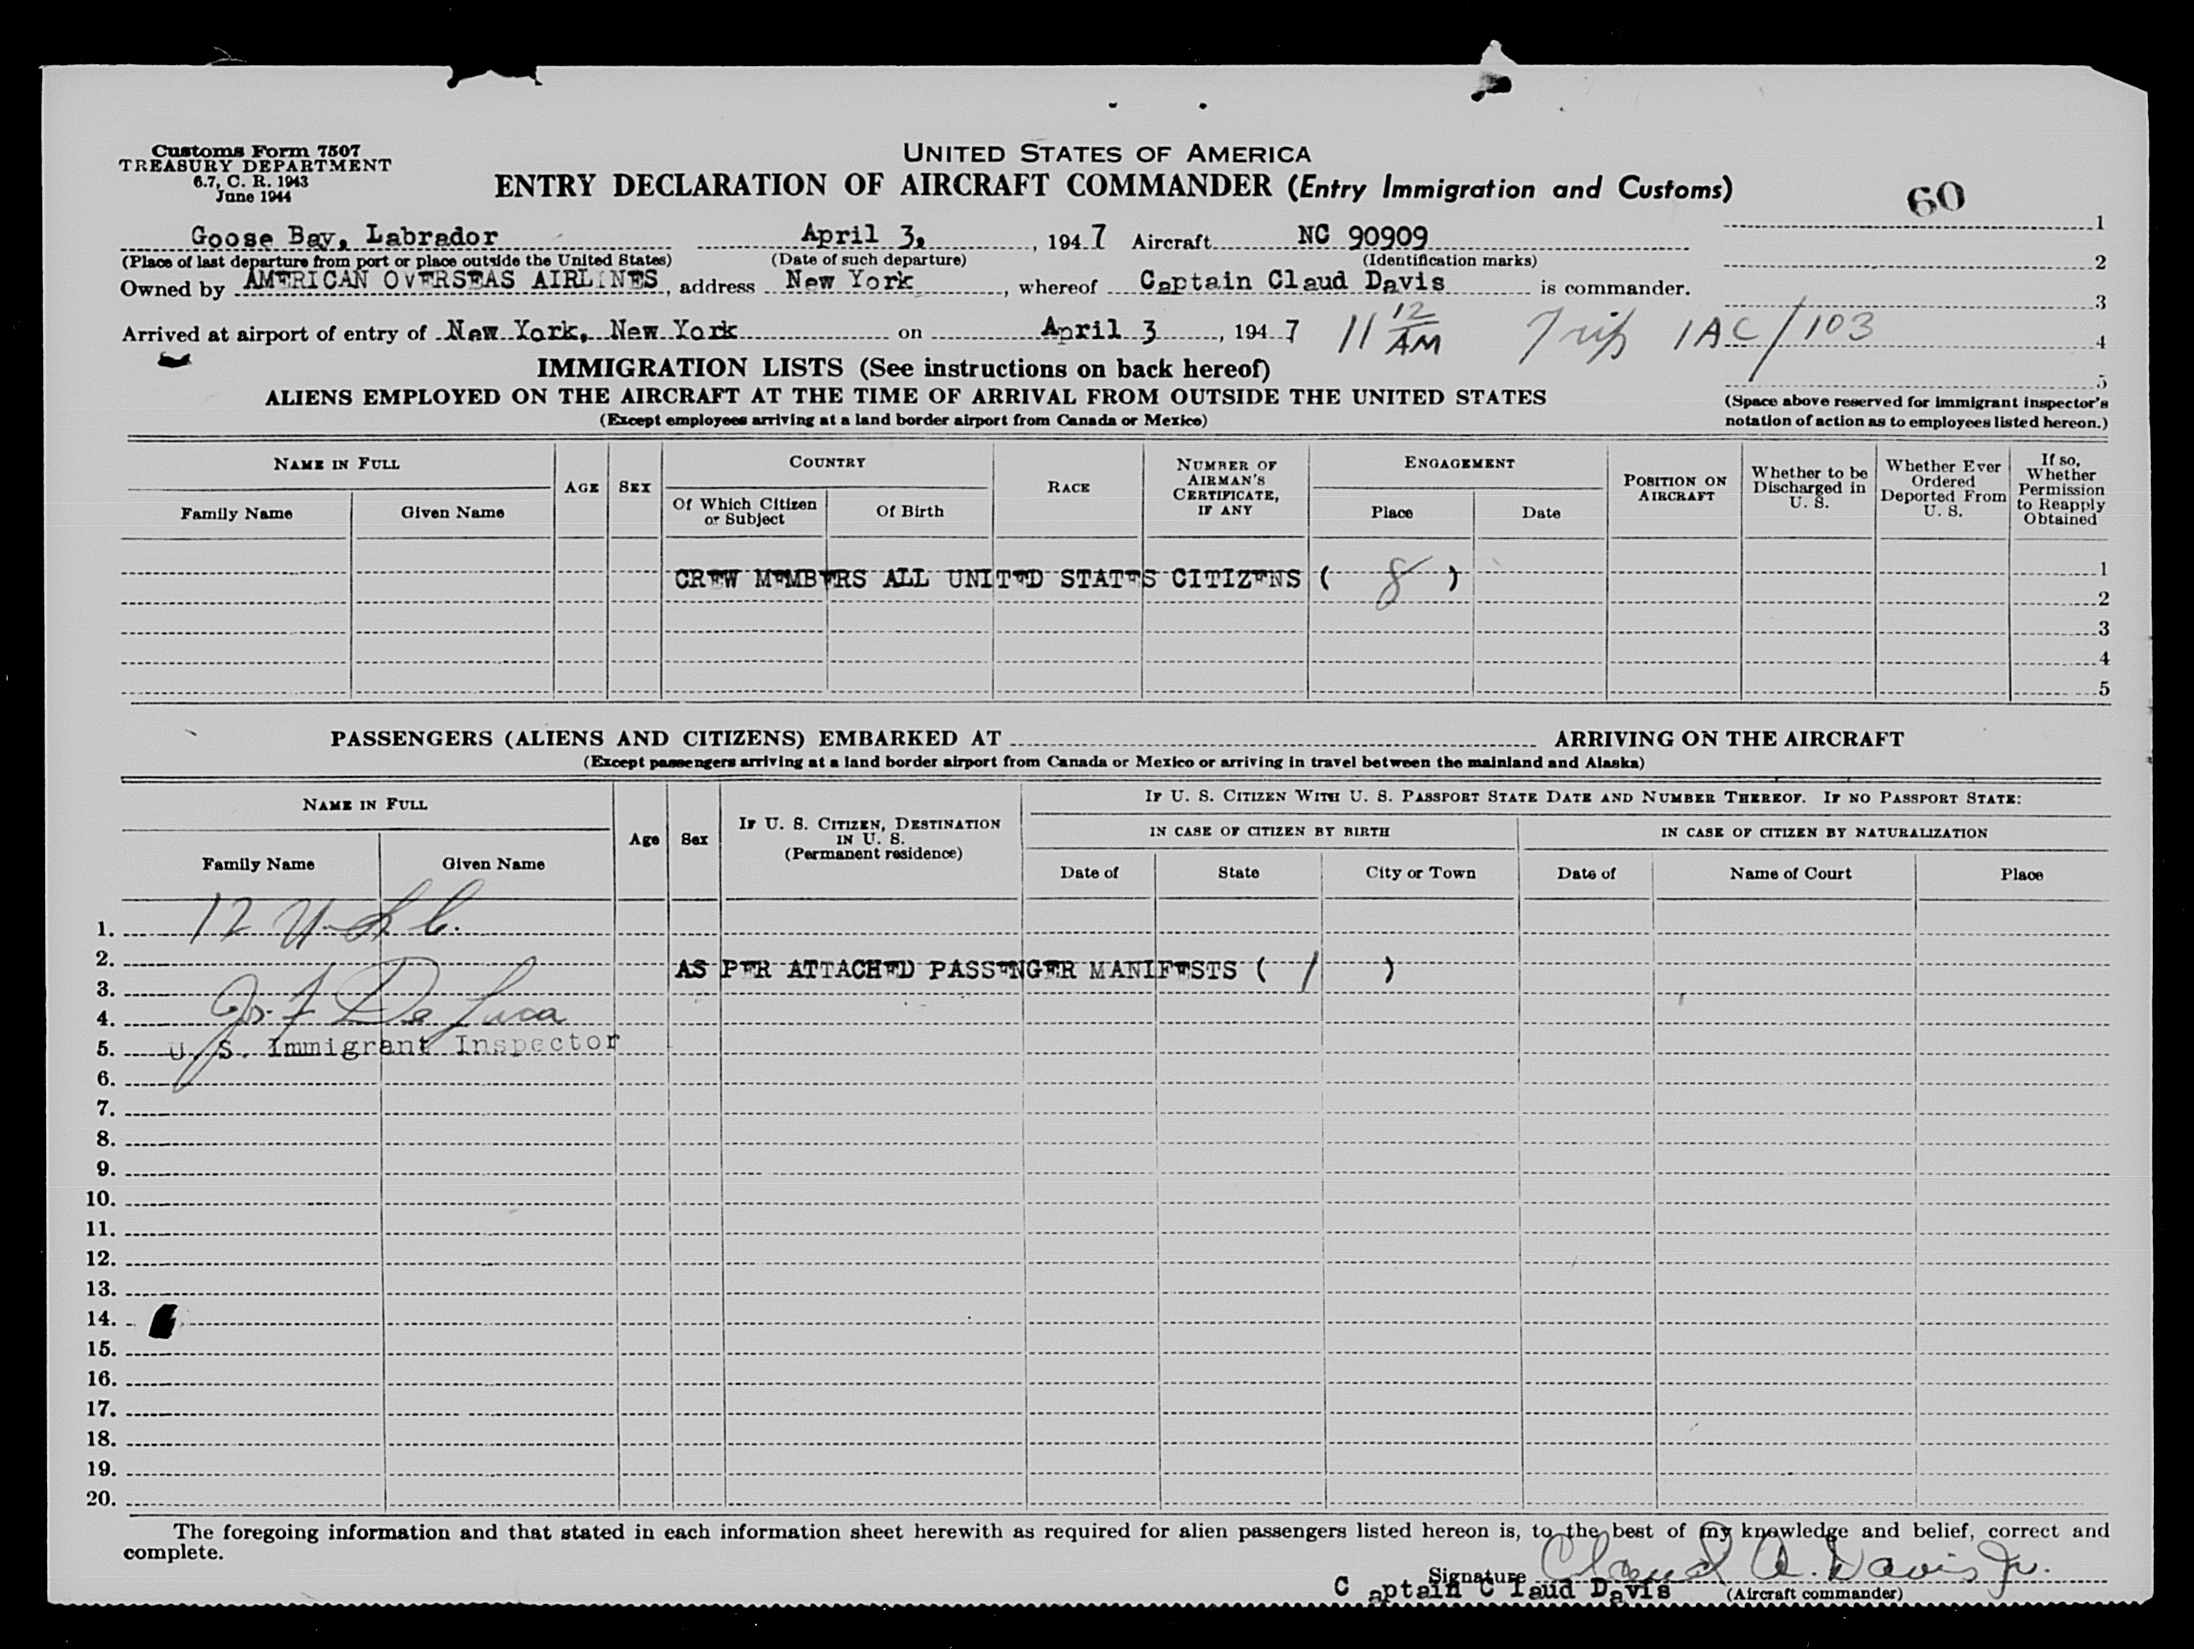 Customs Form 7507
TREASURY DEPARTMENT
6.7, C. R. 1943
June 1944
UNITED STATES OF AMERICA
ENTRY DECLARATION OF AIRCRAFT COMMANDER (Entry Immigration and Customs)
60
Goose Bay, Labrador April 3, , 194 7 Aircraft NC 90909 1
(Place of last departure from port or place outside the United States) (Date of such departure) (Identification marks)
2
Owned by AMERICAN OVERSEAS AIRLINES, address New York, whereof Captain Claud Davis is commander.
3
Arrived at airport of entry of New York, New York on April 3, 194 7 11 12 AM Trip 1AC/103 4
IMMIGRATION LISTS (See instructions on back hereof)
5
ALIENS EMPLOYED ON THE AIRCRAFT AT THE TIME OF ARRIVAL FROM OUTSIDE THE UNITED STATES
(Except employees arriving at a land border airport from Canada or Mexico)
(Space above reserved for immigrant inspector's
notation of action as to employees listed hereon.)
NAME IN FULL
Family Name Given Name
AGE
SEX
COUNTRY
Of Which Citizen or Subject
Of Birth
RACE
NUMBER OF AIRMAN'S CERTIFICATE, IF ANY
ENGAGEMENT
Place Date
POSITION ON AIRCRAFT
Whether to be Discharged in U. S.
Whether Ever Ordered Deported From U. S.
If so, Whether Permission to Reapply Obtained
CREW MEMBERS ALL UNITED STATES CITIZENS ( 8 ) 1
2
3
4
5
PASSENGERS (ALIENS AND CITIZENS) EMBARKED AT ARRIVING ON THE AIRCRAFT
(Except passengers arriving at a land border airport from Canada or Mexico or arriving in travel between the mainland and Alaska)
NAME IN FULL
Family Name Given Name
Age
Sex
IF U. S. CITIZEN, DESTINATION IN U. S.
(Permanent residence)
IF U. S. CITIZEN WITH U. S. PASSPORT STATE DATE AND NUMBER THEREOF. IF NO PASSPORT STATE:
IN CASE OF CITIZEN BY BIRTH IN CASE OF CITIZEN BY NATURALIZATION
Date of State City or Town Date of Name of Court Place
1. 12 U.S.C.
2. AS PER ATTACHED PASSENGER MANIFESTS ( 1 )
3.
4. Jos. F De Luca
5. U. S. Immigrant Inspector
6.
7.
8.
9.
10.
11.
12.
13.
14.
15.
16.
17.
18.
19.
20.
The foregoing information and that stated in each information sheet herewith as required for alien passengers listed hereon is, to the best of my knowledge and belief, correct and
complete.
Signature Claud A. Davis Jr.
Captain Claud Davis (Aircraft commander)